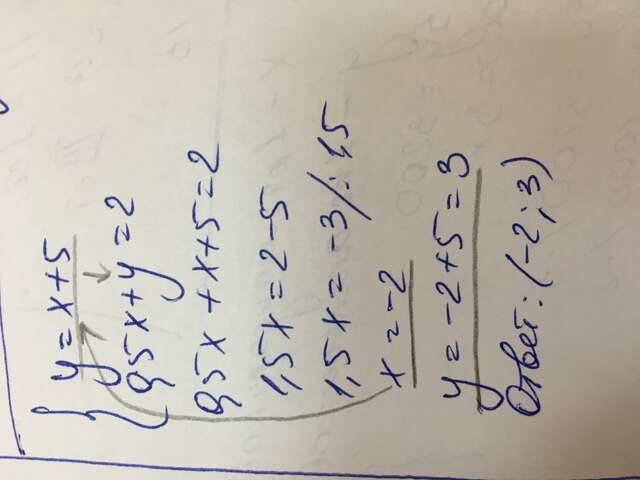 y = x+5
0,5x+y=2
0,5x+x+5=2
1,5x=2-5
1,5x=-3/:1,5
x=-2
y=-2+5=3
Ответ: (-2; 3)